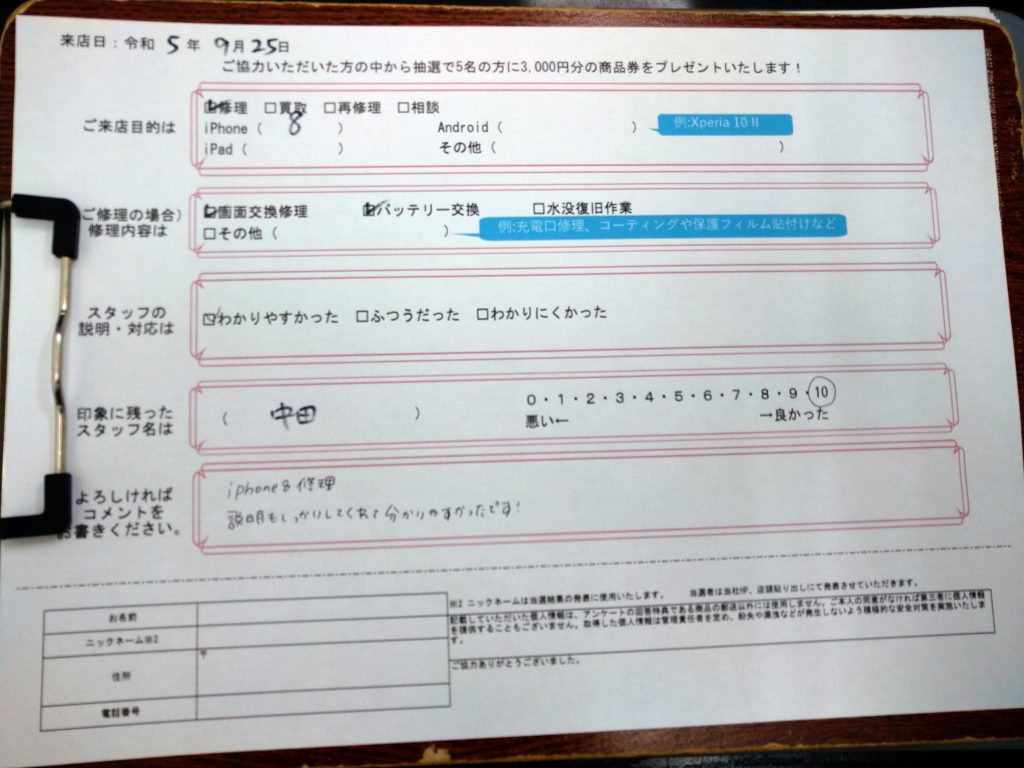 来店日：令和 5 年 9月25日
ご協力いただいた方の中から抽選で5名の方に3,000円分の商品券をプレゼントいたします！
ご来店目的は
☑修理 □買取 □再修理 □相談
iPhone（ 8 ） Android（ ） 例:Xperia 10 II
iPad（ ） その他（ ）
ご修理の場合）
修理内容は
☑画面交換修理 ☑バッテリー交換 □水没復旧作業
□その他（ ） 例:充電口修理、コーティングや保護フィルム貼付けなど
スタッフの
説明・対応は
☑わかりやすかった □ふつうだった □わかりにくかった
印象に残った
スタッフ名は
（ 中田 ）
0・1・2・3・4・5・6・7・8・9・10
悪い← →良かった
よろしければ
コメントを
お書きください。
iphone8 修理
説明もしっかりしてくれて分かりやすかったです！
お名前
ニックネーム※2
住所
〒
電話番号
※2 ニックネームは当選結果の発表に使用いたします。 当選者は当社HP、店頭貼り出しにて発表させていただきます。
記載していただいた個人情報は、アンケートの回答特典である商品の郵送以外には使用しません。ご本人の同意がなければ第三者に個人情報
を提供することもございません。取得した個人情報は管理責任者を定め、紛失や漏洩などが発生しないよう積極的な安全対策を実施いたしま
す。
ご協力ありがとうございました。